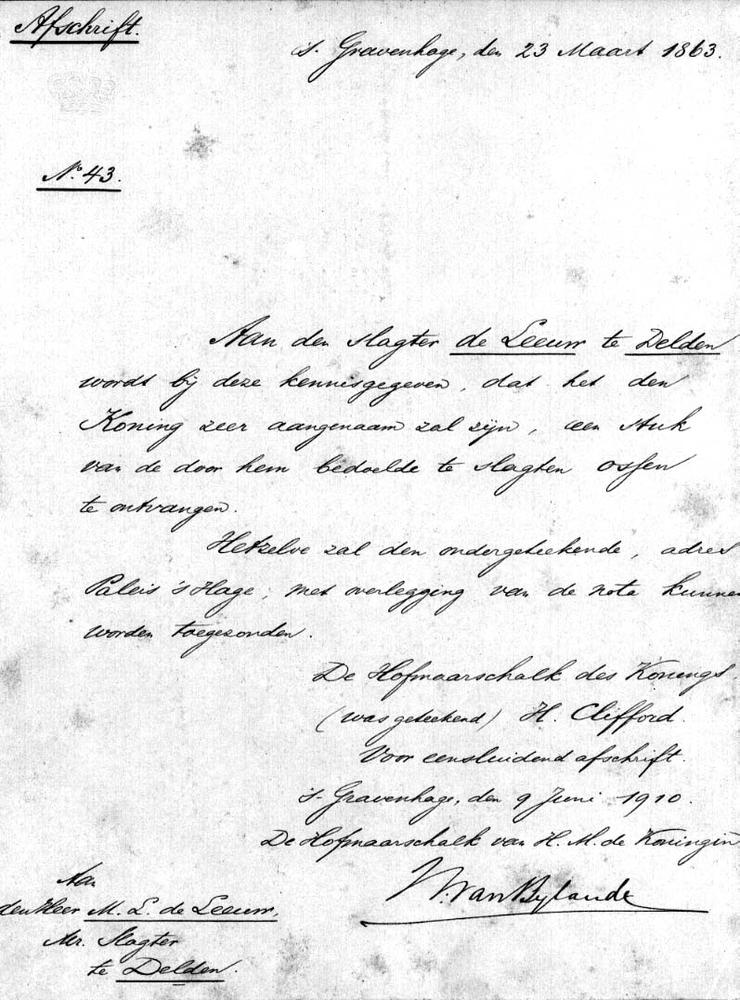 Afschrift.
's Gravenhage, den 23 Maart 1863.
No. 43.
Aan den slagter de Leeuw te Delden
wordt bij deze kennisgegeven, dat het den
Koning zeer aangenaam zal zijn, een stuk
van de door hem bedoelde te slagten ossen
te ontvangen.
Hetzelve zal den ondergeteekende, adres
Paleis 's Hage, met overlegging van de nota kunnen
worden toegezonden.
De Hofmaarschalk des Konings.
(was geteekend) H. Clifford.
Voor eensluidend afschrift.
's-Gravenhage, den 9 Juni 1910.
De Hofmaarschalk van H. M. de Koningin
van Bylandt
Aan
den Heer M. L. de Leeuw,
Mr. Slagter
te Delden.